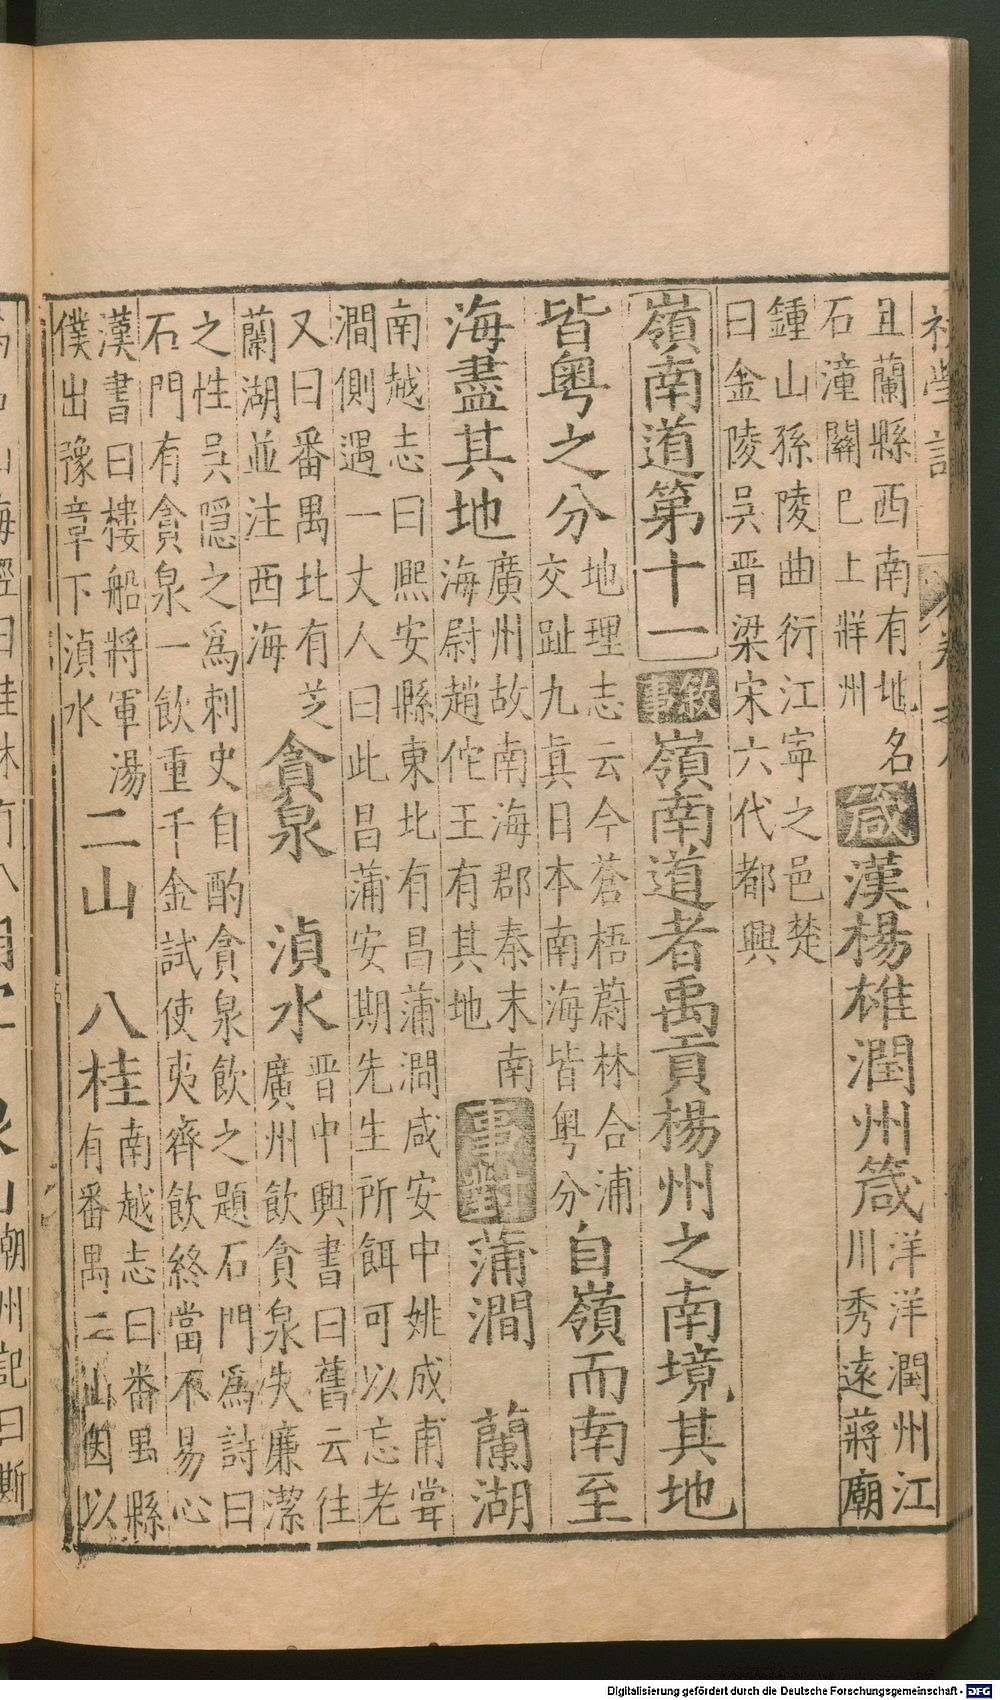 且蘭縣西南有地名
石潼關巳上牂州
箴漢楊雄潤州箴
洋洋潤州江
川秀遠蔣廟
鍾山孫陵曲衍江寧之邑楚
曰金陵吳晉梁宋六代都興
嶺南道第十一敘事嶺南道者禹貢楊州之南境其地
皆粵之分
地理志云今蒼梧蔚林合浦
交趾九真日本南海皆粵分
自嶺而南至
海盡其地
廣州故南海郡秦末南
海尉趙佗王有其地
事對蒲澗 蘭湖
南越志曰熙安縣東北有昌蒲澗咸安中姚成甫嘗
澗側遇一丈人曰此昌蒲安期先生所餌可以忘老
又曰番禺北有芝
蘭湖並注西海
貪泉 湞水
晉中興書曰舊云往
廣州飲貪泉失廉潔
之性吳隱之為刺史自酌貪泉飲之題石門為詩曰
石門有貪泉一飲重千金試使夷齊飲終當不易心
漢書曰樓船將軍湯
僕出豫章下湞水
二山 八桂
南越志曰番禺縣
有番禺二山因以
潮州記曰斷
Digitalisierung gefördert durch die Deutsche Forschungsgemeinschaft - DFG